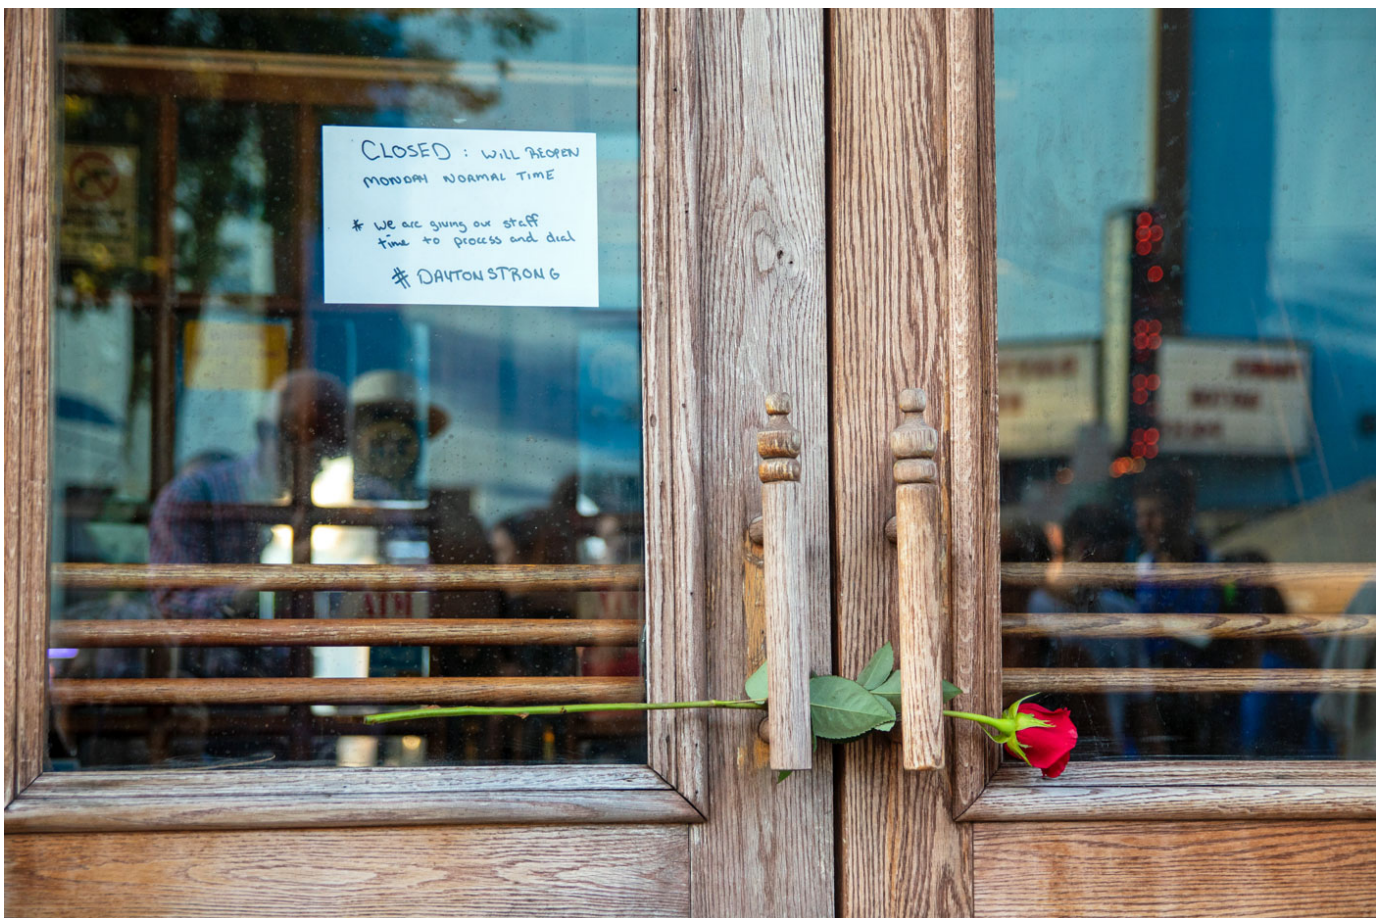 CLOSED : WILL REOPEN
MONDAY NORMAL TIME
* we are giving our staff
time to process and dial
# DAYTONSTRONG
ATM